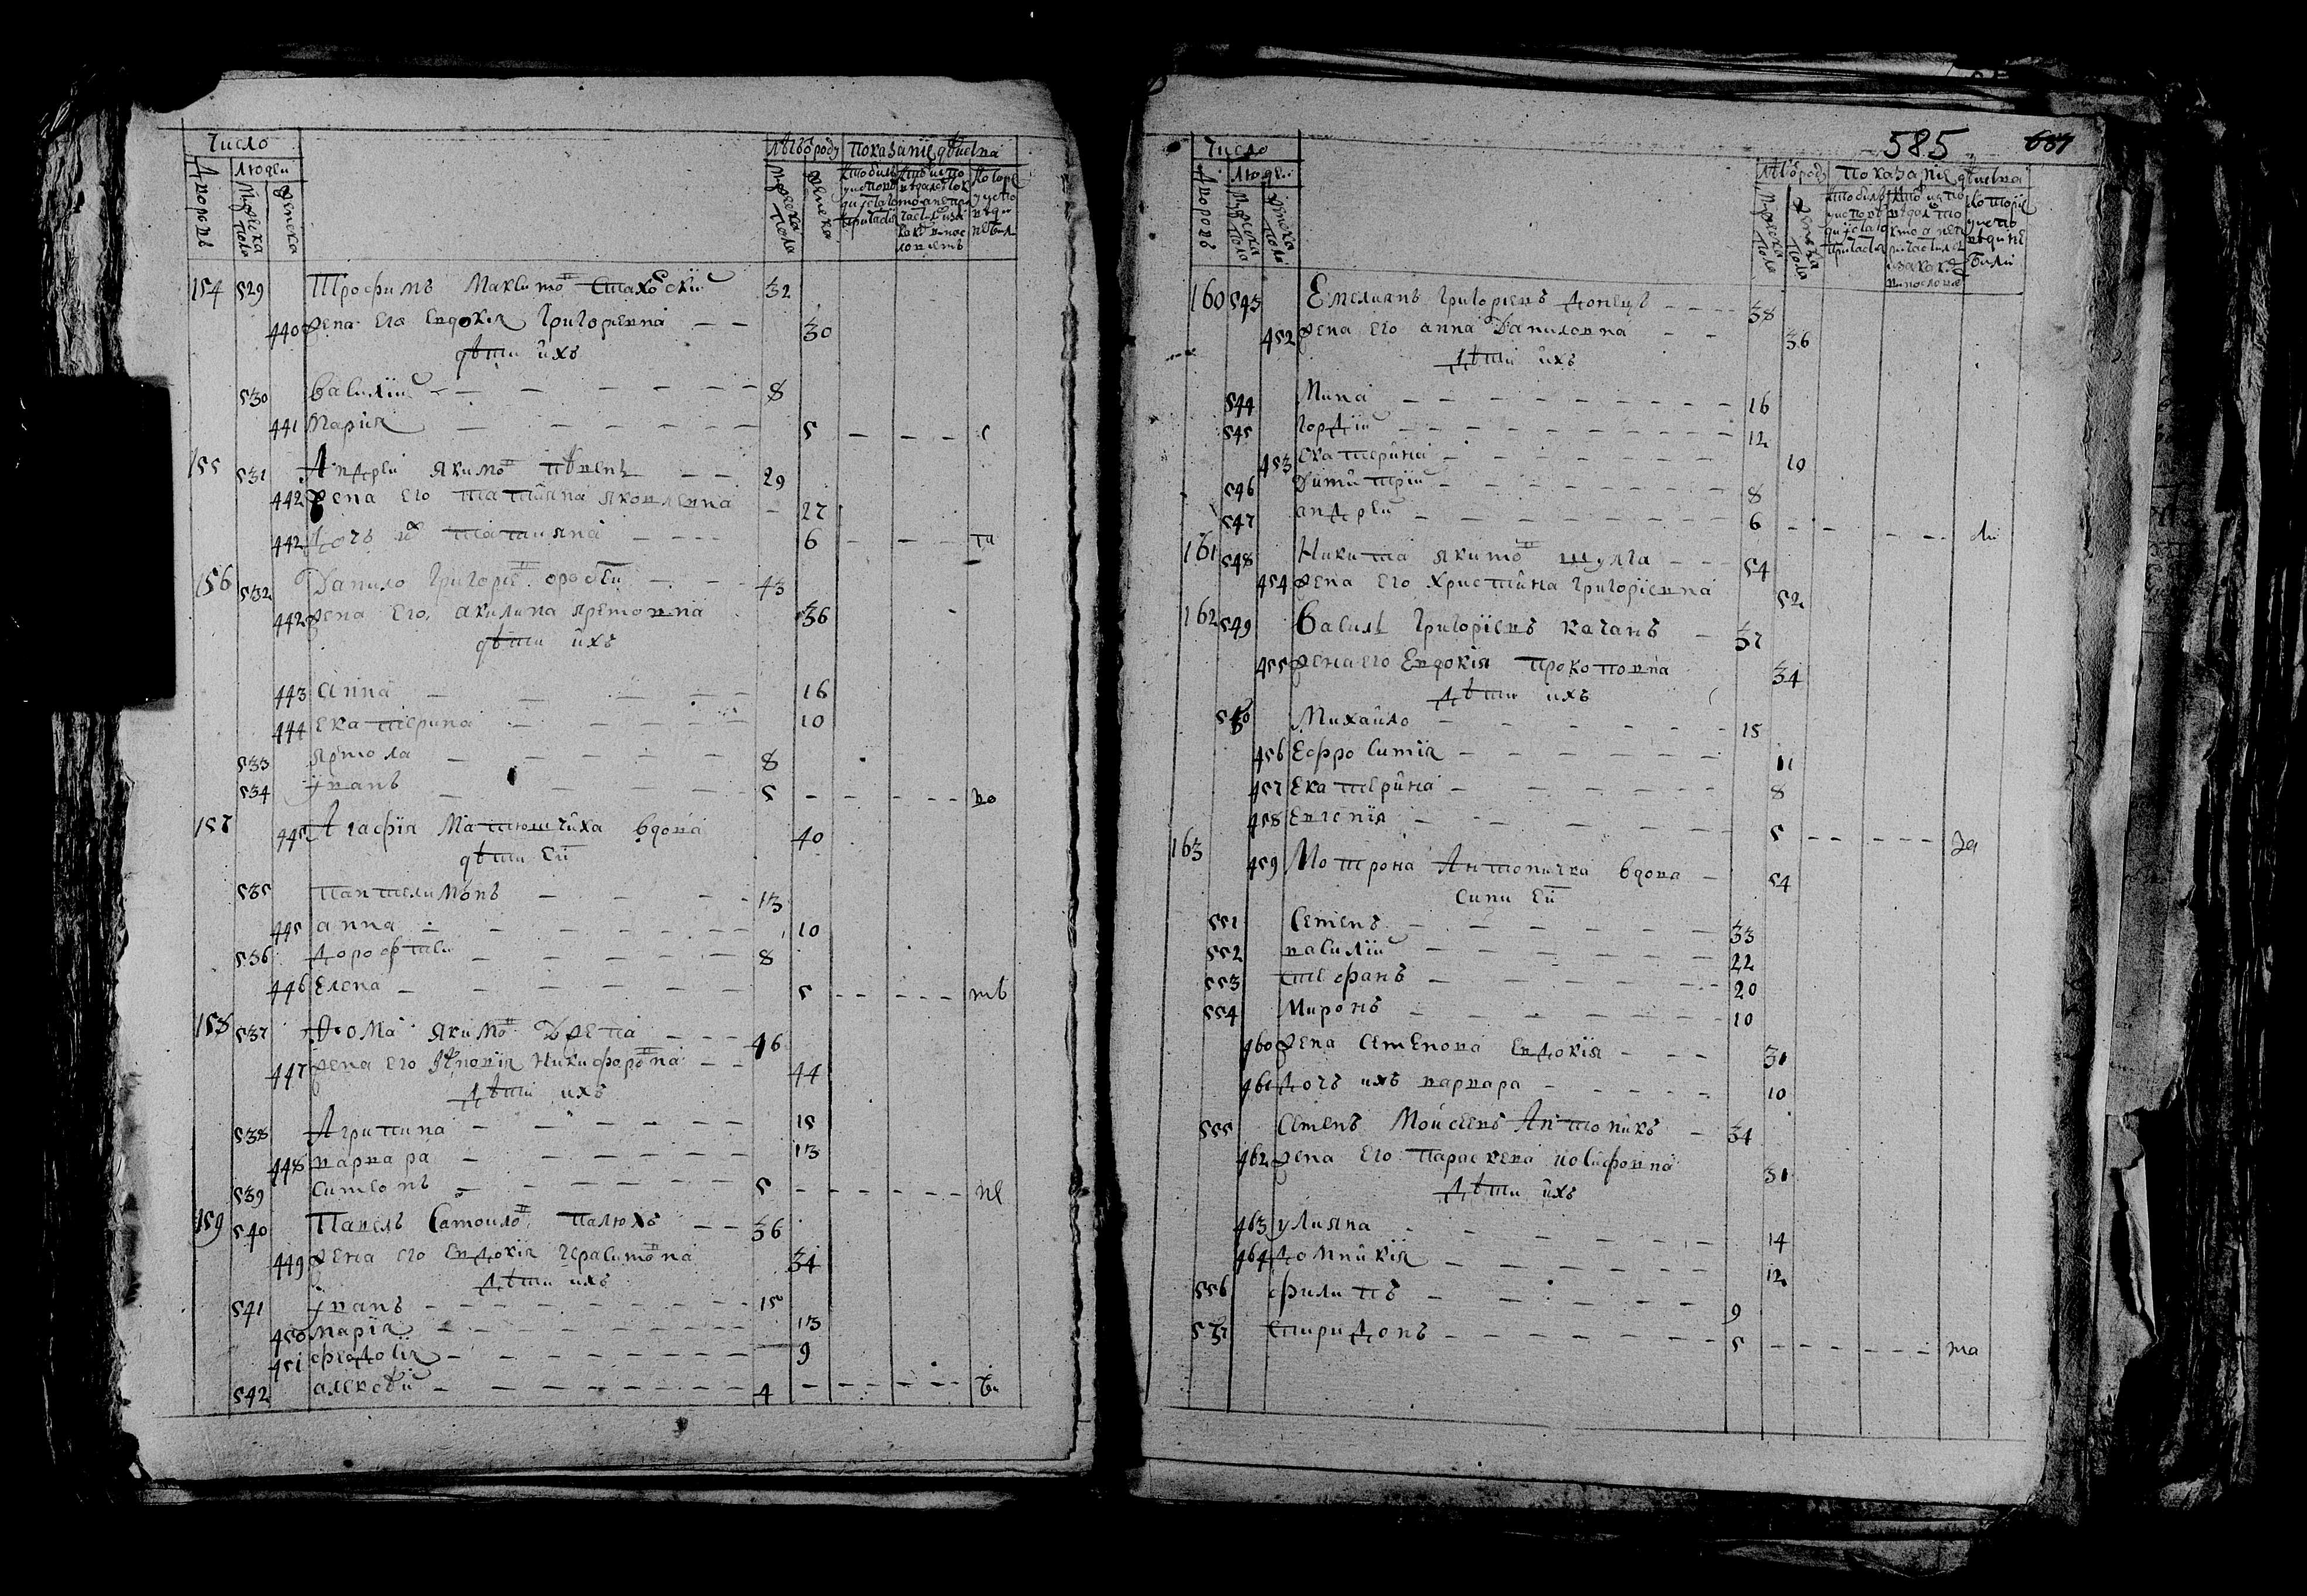 Число
Людей
Дворовъ
Мужеска пола
Женска
Лѣтъ ѿ роду
Показаніе дѣйства
Мужеска пола
Женска
154 529 Трофимъ Максимовъ Стаховскій 32
440 Жена его Евдокія Григориевна — — 30
дѣти ихъ
530 Василій — — — — — 8
441 Марія — — — — — 5 — — —
155 531 Андрей Якимовъ — — 29
442 Жена его Татіяна Яковлевна — 27
442 Дочь их Татияна — — — 6 — — —
156 532 Данило Григориев — — 43
442 Жена его Акилина Яремовна 36
дѣти ихъ
443 Анна — — — — 16
444 Екатерина — — — — 10
533 Ярмола — — — — 8
534 Іванъ — — — — 5 — — — — во
157 445 Агафія Матюшчиха вдова 40
дѣти еи
535 Пантелимонъ — — — — 13
445 Анна — — — — — 10
536 Дорофтей — — — — — 8
446 Елена — — — — — — 5 — — — — — мѣ
158 537 Ѳома Якимовъ Дрепа — — — 46
447 Жена его Зѣновія Никифоровна — — 44
Дѣти ихъ
538 Агрипина — — — — — 15
448 Варвара — — — — — — 13
539 Симеонъ — — — — — — 5 — — — — — — не
159 540 Павелъ Самоиловъ Палюхъ — — 36
449 Жена его Евдокія Герасимовна 34
Дѣти ихъ
541 Іванъ — — — — — — — — 15
450 Марія — — — — — — — — 13
451 Феодосія — — — — — — — — 9
542 Алексѣй — — — — — — — 4 — — — — — — бы
585
Число
Людей
Дворовъ
Мужеска пола
Женска пола
Лѣтъ ѿ роду
Показаніе дѣйства
Мужеска пола
Женска пола
160 543 Емелиянъ Григориевъ Донецъ — — — — 38
452 Жена его Анна Даниловна — — 36
Дѣти ихъ
544 Мина — — — — — — — — — 16
545 Гордій — — — — — — — — — 12
453 Екатерина — — — — — — — 10
546 Димитрій — — — — — — — — 8
547 Андрей — — — — — — — — 6 — — — — — ли
161 548 Никита Якимовъ Шулга — — — 54
454 Жена его Христина Григоріевна 52
162 549 Василь Григоріевъ Качанъ — 37
455 Жена его Евдокія Прокоповна 34
Дѣти ихъ
550 Михайло — — — — — — 15
456 Ефросимія — — — — — — 11
457 Екатерина — — — — — — 8
458 Евгенія — — — — — — 5 — — — — — — за
163 459 Мотрона Антоничка вдова — 54
Сини еи
551 Семенъ — — — — — — 33
552 Василій — — — — — — — 22
553 Стефанъ — — — — — — — 20
554 Миронъ — — — — — — — 10
460 Жена Семенова Евдокія — — — 31
461 Дочь ихъ Варвара — — — — — 10
555 Семенъ Моисеевъ Антоникъ — 34
462 Жена его Параскева Иосифовна 31
Дѣти ихъ
463 Улияна — — — — — — 14
464 Домникія — — — — — — 12
556 Филипъ — — — — — 9
557 Спиридонъ — — — — — — — 5 — — — — — — ма